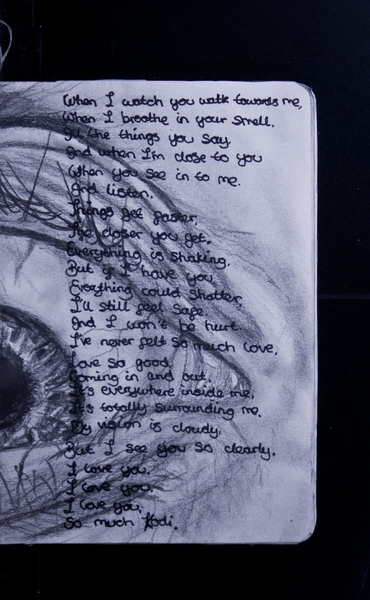 When I watch you walk towards me,
When I breathe in your smell.
All the things you say
And when I'm close to you
When you see in to me.
And listen.
Things get faster
The closer you get.
Everything is shaking.
But if I have you,
Everything could shatter,
I'll still feel safe.
And I won't be hurt..
I've never felt so much love,
Love so good,
Coming in and out.
It's everywhere inside me,
It's totally surrounding me.
My vision is cloudy,
But I see you so clearly.
I love you,
I love you,
I love you,
So much Kodi.